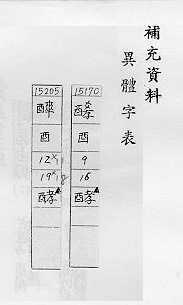 補充資料
異體字表
15170
酉
9
16
酵
15205
酉
12
19
酵